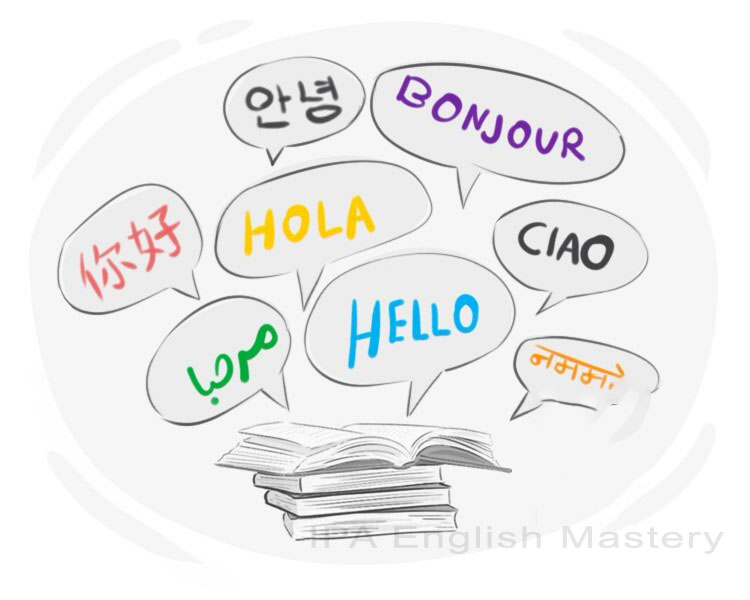 안녕
BONJOUR
你好
HOLA
CIAO
مرحبا
HELLO
IPA English Mastery